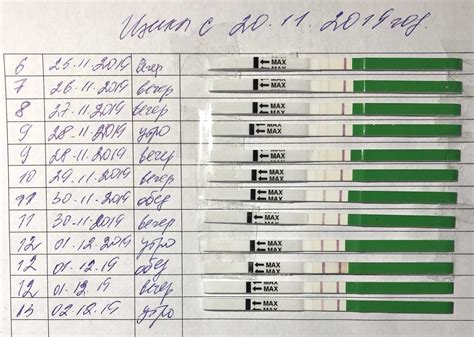 Циклы с 20.11.2019 год.
6 25.11.2019 вечер ← MAX
7 26.11.2019 вечер ← MAX
8 27.11.2019 вечер ← MAX
9 28.11.2019 утро ← MAX
9 28.11.2019 вечер ← MAX
10 29.11.2019 вечер ← MAX
11 30.11.2019 обед ← MAX
11 30.11.2019 вечер ← MAX
12 01.12.2019 утро ← MAX
12 01.12.19 обед ← MAX
12 01.12.19 вечер ← MAX
13 02.12.19 утро ← MAX